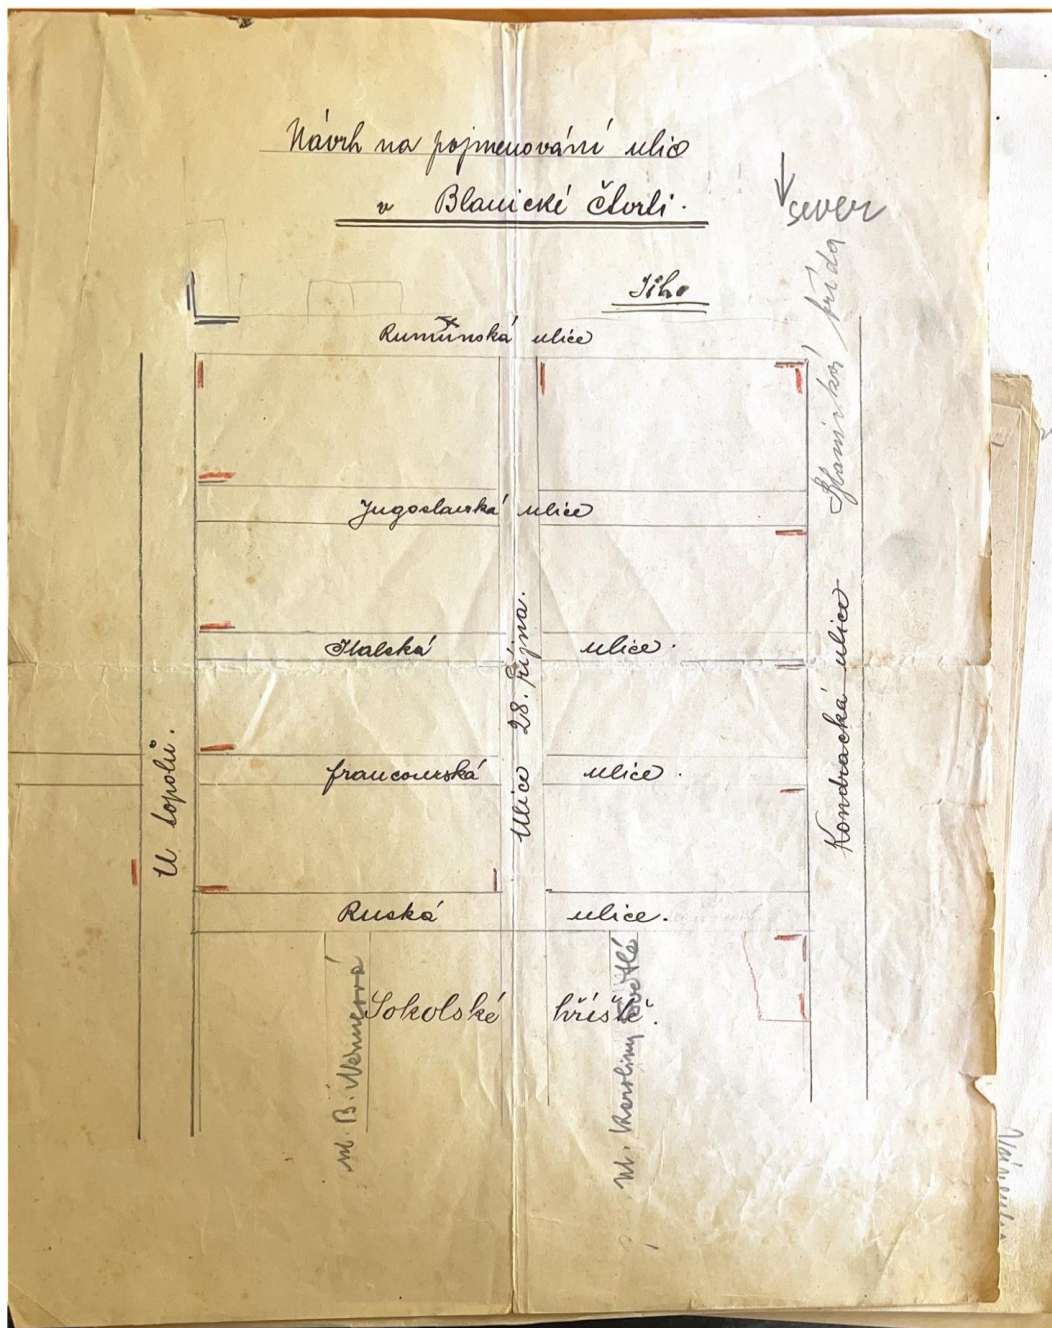 Návrh na pojmenování ulic
v Blanické čtvrti.
sever
Jih
Rumunská ulice
Blanická třída
Jugoslavská ulice
Italská ulice.
Ulice 28. října.
Kondracká ulice
U topolů.
francouzská ulice.
Ruská ulice.
Sokolské hřiště.
ul. B. Němcová
ul. Karoliny Světlé